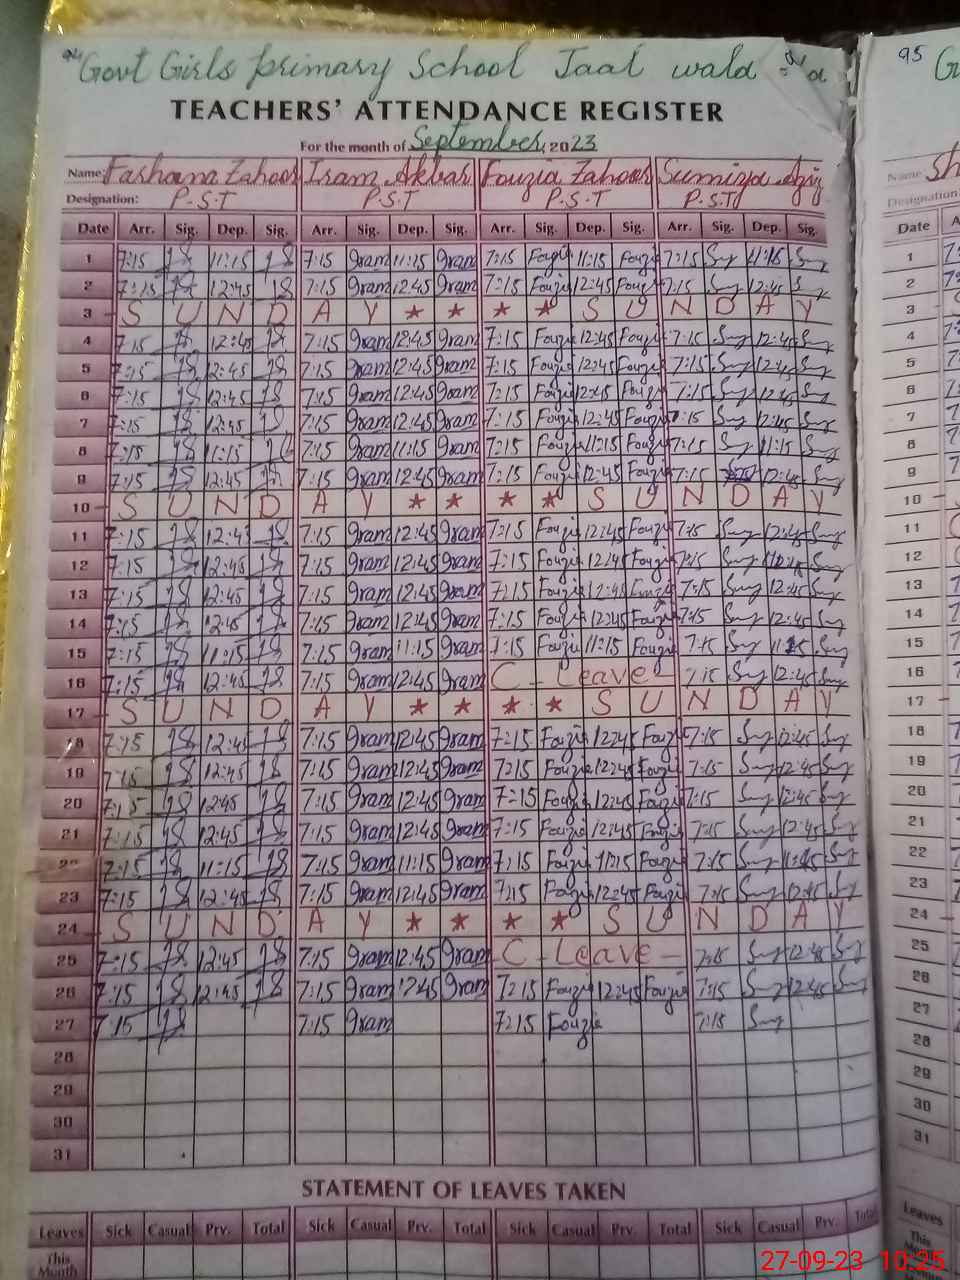 94 Govt Girls primary School Jaal wala
TEACHERS' ATTENDANCE REGISTER
For the month of September, 2023
Name: Farhana Zahoor Iram Akbar Fouzia Zahoor Sumiza Aziz
Designation: P.S.T P.S.T P.S.T P.S.T
Date Arr. Sig. Dep. Sig. Arr. Sig. Dep. Sig. Arr. Sig. Dep. Sig. Arr. Sig. Dep. Sig.
1 7:15 11:15 7:15 Iram 11:15 Iram 7:15 Fouzi 11:15 Fouzi 7:15 11:15
2 7:15 12:45 7:15 Iram 12:45 Iram 7:15 Fouzi 12:45 Fouzi 7:15 12:45
3 S U N D A Y * * * * S U N D A Y
4 7:15 12:45 7:15 Iram 12:45 Iram 7:15 Fouzi 12:45 Fouzi 7:15 12:45
5 7:15 12:45 7:15 Iram 12:45 Iram 7:15 Fouzi 12:45 Fouzi 7:15 12:45
6 7:15 12:45 7:15 Iram 12:45 Iram 7:15 Fouzi 12:45 Fouzi 7:15 12:45
7 7:15 12:45 7:15 Iram 12:45 Iram 7:15 Fouzi 12:45 Fouzi 7:15 12:45
8 7:15 11:15 7:15 Iram 11:15 Iram 7:15 Fouzi 11:15 Fouzi 7:15 11:15
9 7:15 12:45 7:15 Iram 12:45 Iram 7:15 Fouzi 12:45 Fouzi 7:15 12:45
10 S U N D A Y * * * * S U N D A Y
11 7:15 12:45 7:15 Iram 12:45 Iram 7:15 Fouzi 12:45 Fouzi 7:15 12:45
12 7:15 12:45 7:15 Iram 12:45 Iram 7:15 Fouzi 12:45 Fouzi 7:15
13 7:15 12:45 7:15 Iram 12:45 Iram 7:15 Fouzi 12:45 Fouzi 7:15 12:45
14 7:15 12:45 7:15 Iram 12:45 Iram 7:15 Fouzi 12:45 Fouzi 7:15 12:45
15 7:15 11:15 7:15 Iram 11:15 Iram 7:15 Fouzi 11:15 Fouzi 7:15 11:15
16 7:15 12:45 7:15 Iram 12:45 Iram C - Leave 7:15 12:45
17 S U N D A Y * * * * S U N D A Y
18 7:15 12:45 7:15 Iram 12:45 Iram 7:15 Fouzi 12:45 Fouzi 7:15 12:45
19 7:15 12:45 7:15 Iram 12:45 Iram 7:15 Fouzi 12:45 Fouzi 7:15 12:45
20 7:15 12:45 7:15 Iram 12:45 Iram 7:15 Fouzi 12:45 Fouzi 7:15 12:45
21 7:15 12:45 7:15 Iram 12:45 Iram 7:15 Fouzi 12:45 Fouzi 7:15 12:45
22 7:15 11:15 7:15 Iram 11:15 Iram 7:15 Fouzi 11:15 Fouzi 7:15 11:15
23 7:15 12:45 7:15 Iram 12:45 Iram 7:15 Fouzi 12:45 Fouzi 7:15 12:45
24 S U N D A Y * * * * S U N D A Y
25 7:15 12:45 7:15 Iram 12:45 Iram C - Leave - 7:15 12:45
26 7:15 12:45 7:15 Iram 12:45 Iram 7:15 Fouzi 12:45 Fouzi 7:15 12:45
27 7:15 7:15 Iram 7:15 Fouzi 7:15
28
29
30
31
STATEMENT OF LEAVES TAKEN
Leaves Sick Casual Prv. Total Sick Casual Prv. Total Sick Casual Prv. Total Sick Casual Prv. Total
This Month
95 G
Name Sh
Designation
Date A
1
2
3
4
5
6
7
8
9
10
11
12
13
14
15
16
17
18
19
20
21
22
23
24
25
26
27
28
29
30
31
Leaves
This
27-09-23 10:25